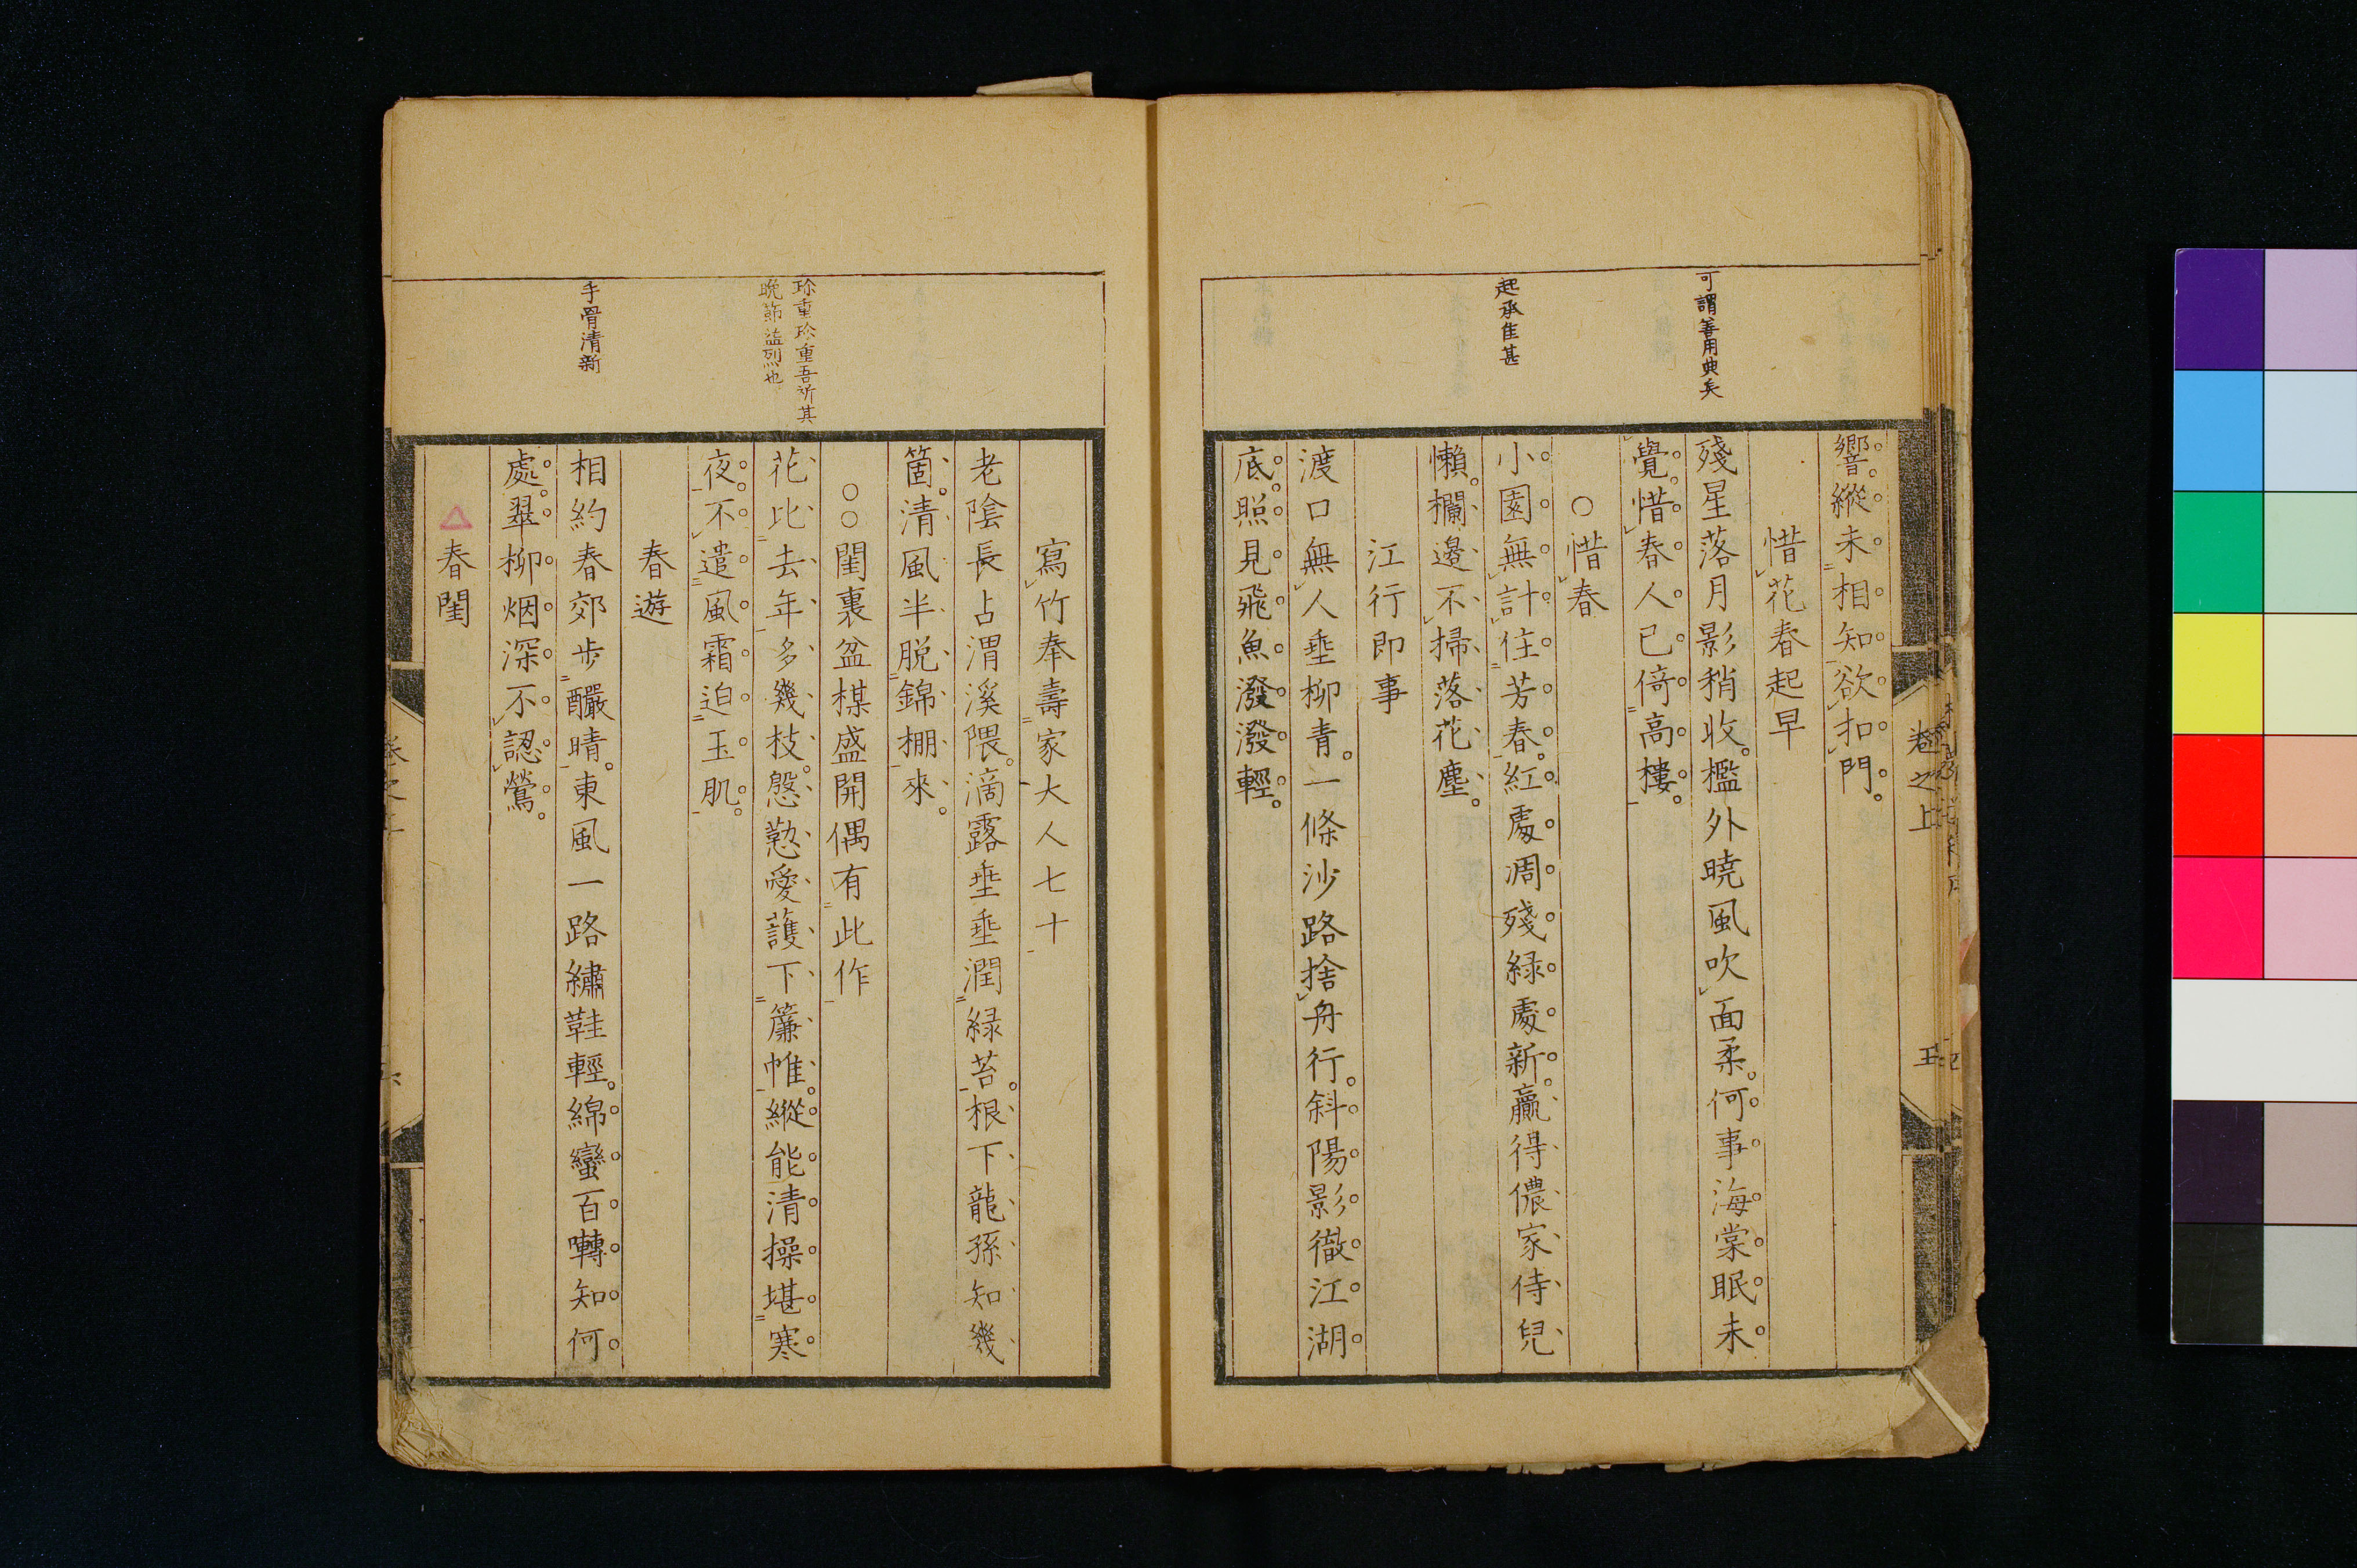 響縱未相知欲扣門。
惜花春起早
可謂善用典矣
殘星落月影稍收。檻外曉風吹面柔。何事海棠眠未
覺。惜春人已倚高樓。
○惜春
起承佳甚
小園無計住芳春。紅處凋殘緑處新。贏得儂家侍兒
懶。欄邊不掃落花塵。
江行即事
渡口無人垂柳青。一條沙路捨舟行。斜陽影徹江湖
底。照見飛魚潑潑輕。
卷之上
五
寫竹奉壽家大人七十
老陰長占渭溪隈。滴露垂垂潤緑苔。根下龍孫知幾
箇。清風半脱錦棚來。
○○閨裏盆楳盛開偶有此作
珍重珍重吾祈其
晩節益烈也
花比去年多幾枝。慇懃愛護下簾帷。縱能清操堪寒
夜。不遣風霜迫玉肌。
春遊
手骨清新
相約春郊歩釅晴。東風一路繡鞋輕。綿蠻百囀知何
處。翠柳烟深不認鶯。
△春閨